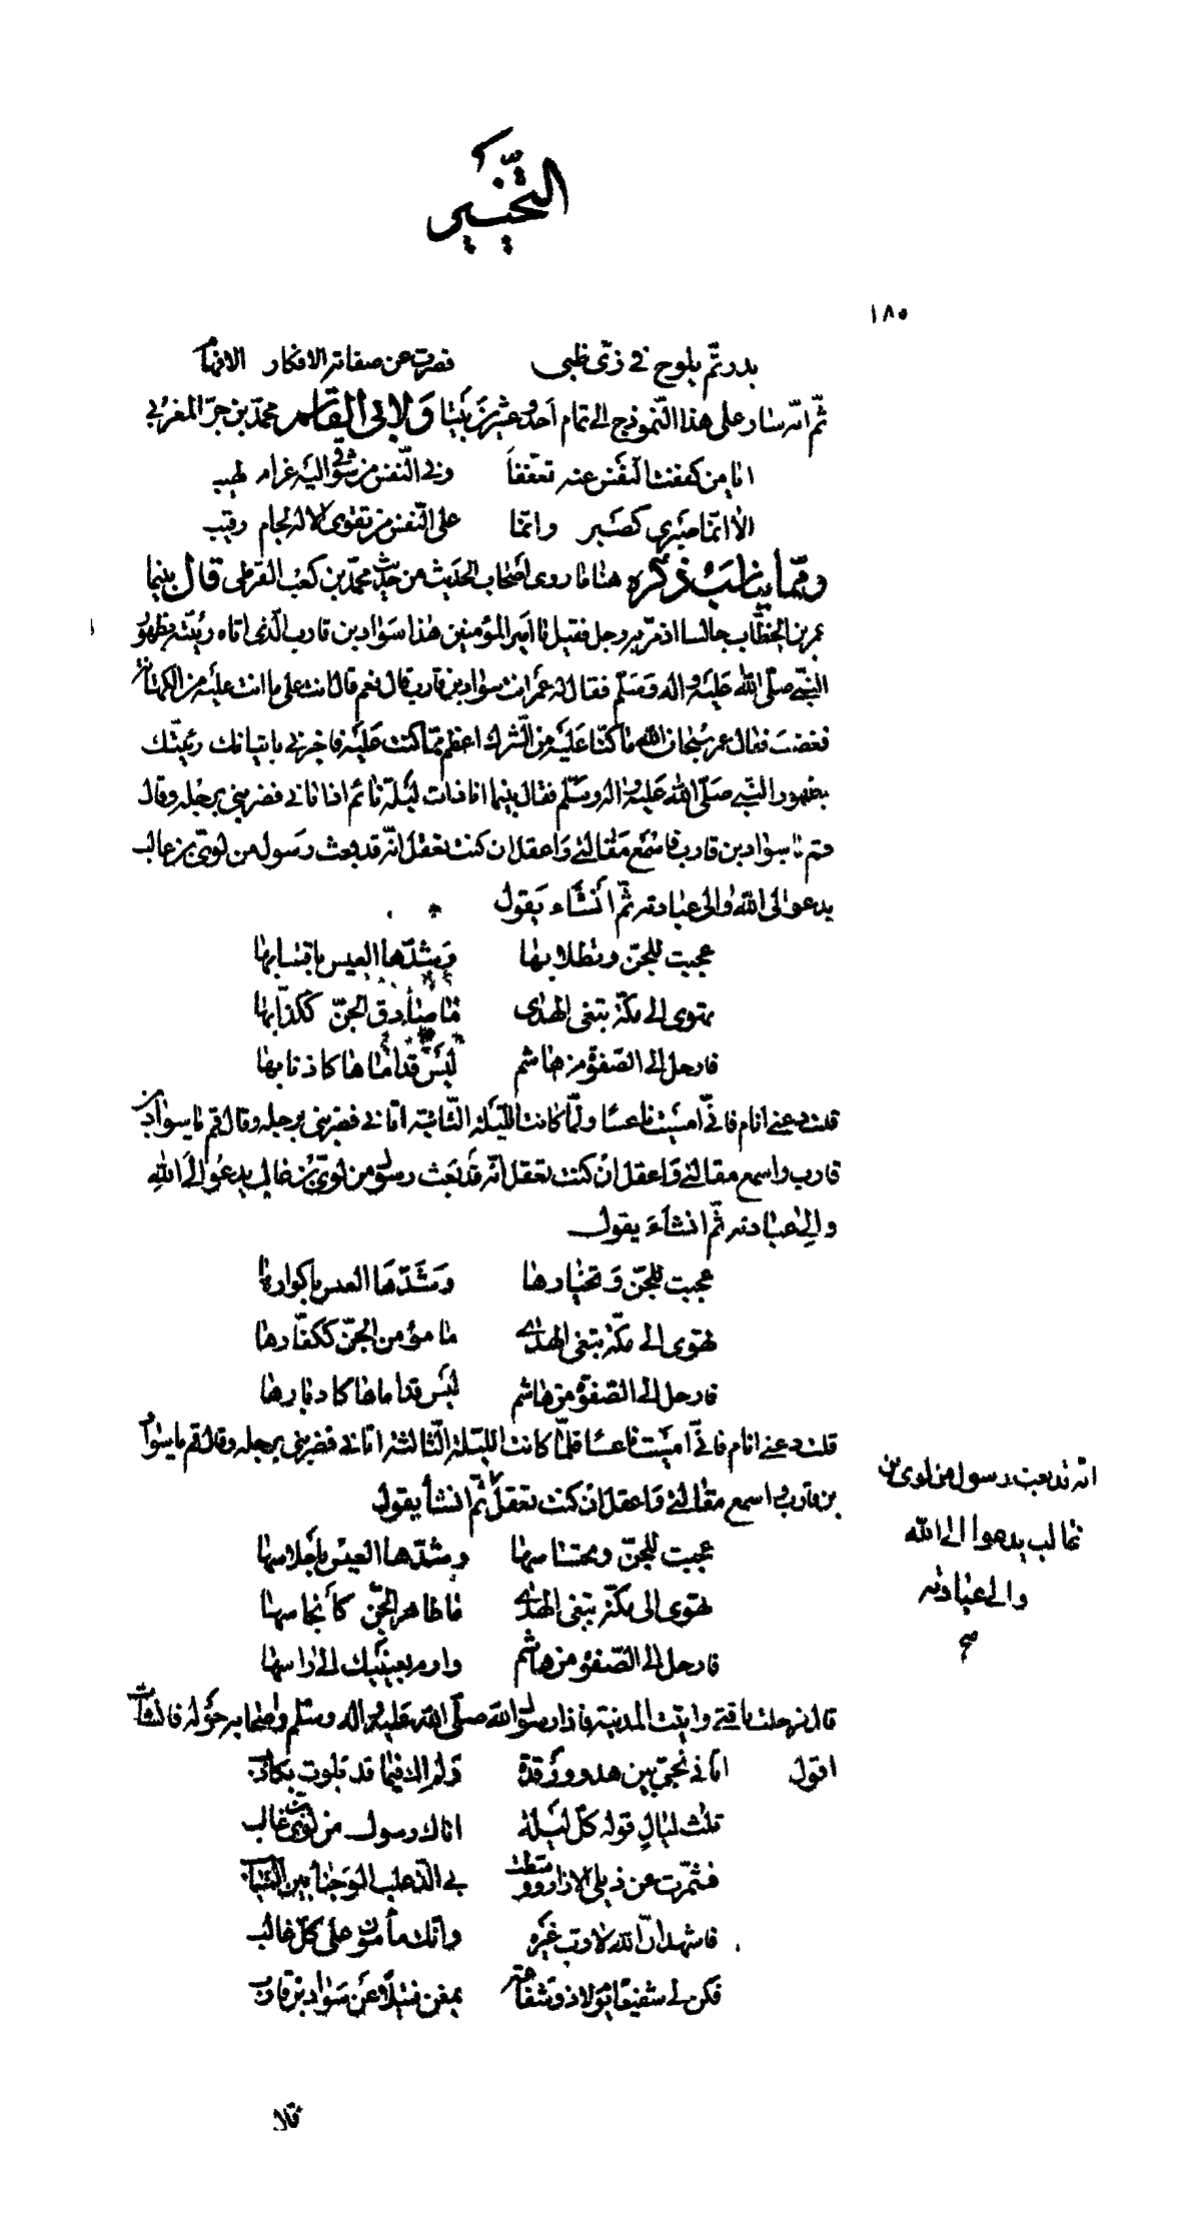 التخيير
١٨٥
بدر تمّ يلوح في زيّ ظبي قصرت عن صفاته الافكار الافهام
ثمّ انّه سار على هذا النّموذج الى تمام احد وعشرين بيتا ولابي القاسم محمّد بن حرّ المغربي
انا من كففت النّفس عنه تعفّفاً وفي النّفس من شوق اليه غرام لهيب
الا انّما صبري كصبر وانّما على النّفس من تقوى الاله لجام رقيب
وممّا يناسب ذكره هنا ما روى اصحاب الحديث من حديث محمّد بن كعب القرظي قال بينما
عمر بن الخطّاب جالسا اذ مرّ به رجل فقيل يا امير المؤمنين هذا سواد بن قارب الّذي اتاه رئيّه بظهور
النبيّ صلّى الله عليه واله وسلّم فقال له عمر انت سواد بن قارب قال نعم قال انت على ما انت عليه من الكهانة
فغضب فقال عمر سبحان الله ما كنّا عليه من الشّرك اعظم ممّا كنت عليه فاخبرني باتيانك رئيّك
بظهور النّبيّ صلّى الله عليه واله وسلّم فقال بينما انا ذات ليلة نائم اذ اتاني فضربني برجله وقال
قم يا سواد بن قارب فاسمع مقالتي واعقل ان كنت تعقل انّه قد بعث رسول من لويّ بن غالب
يدعو الى الله والى عبادته ثمّ انشاء يقول
عجبت للجنّ وتطلابها وشدّها العيس باقتابها
تهوى الى مكّة تبغي الهدى ما صادق الجنّ ككذّابها
فارحل الى الصّفوة من هاشم ليس قداماها كاذنابها
قلت دعني انام فانّي امسيت ناعسا ولمّا كانت اللّيلة الثّانية اتاني فضربني برجله وقال قم يا سواد بن
قارب واسمع مقالتي واعقل ان كنت تعقل انّه قد بعث رسول من لويّ بن غالب يدعو الى الله
والى عبادته ثمّ انشاء يقول
عجبت للجنّ وتخبارها وشدّها العيس باكوارها
تهوى الى مكّة تبغي الهدى ما مؤمن الجنّ ككفّارها
فارحل الى الصّفوة من هاشم ليس قداماها كادبارها
قلت دعني انام فانّي امسيت ناعسا فلمّا كانت اللّيلة الثّالثة اتاني فضربني برجله وقال قم يا سواد
بن قارب واسمع مقالتي واعقل ان كنت تعقل ثمّ انشأ يقول
انّه قد بعث رسول من لوى بن
غالب يدعوا الى الله
والى عبادته
صح
عجبت للجنّ وتحساسها وشدّها العيس باحلاسها
تهوى الى مكّة تبغي الهدى ما طاهر الجنّ كانجاسها
فارحل الى الصّفوة من هاشم وارم بعينيك الى راسها
قال فرحلت ناقتي واتيت المدينة فاذا رسول الله صلّى الله عليه واله وسلّم واصحابه حوله فانشات
اقول اتاني نجيّ بين هدو ورقدة ولم اك فيما قد تلوت بكاذب
ثلث ليال قوله كلّ ليلة اتاك رسول من لويّ بن غالب
فشمّرت عن ذيلي الازار ووسّطت بي الذّعلب الوجناء بين السّباسب
فاشهد انّ الله لا ربّ غيره وانّك مأمون على كلّ غائب
فكن لي شفيعا يوم لا ذو شفاعة بمغن فتيلا عن سواد بن قارب
قال